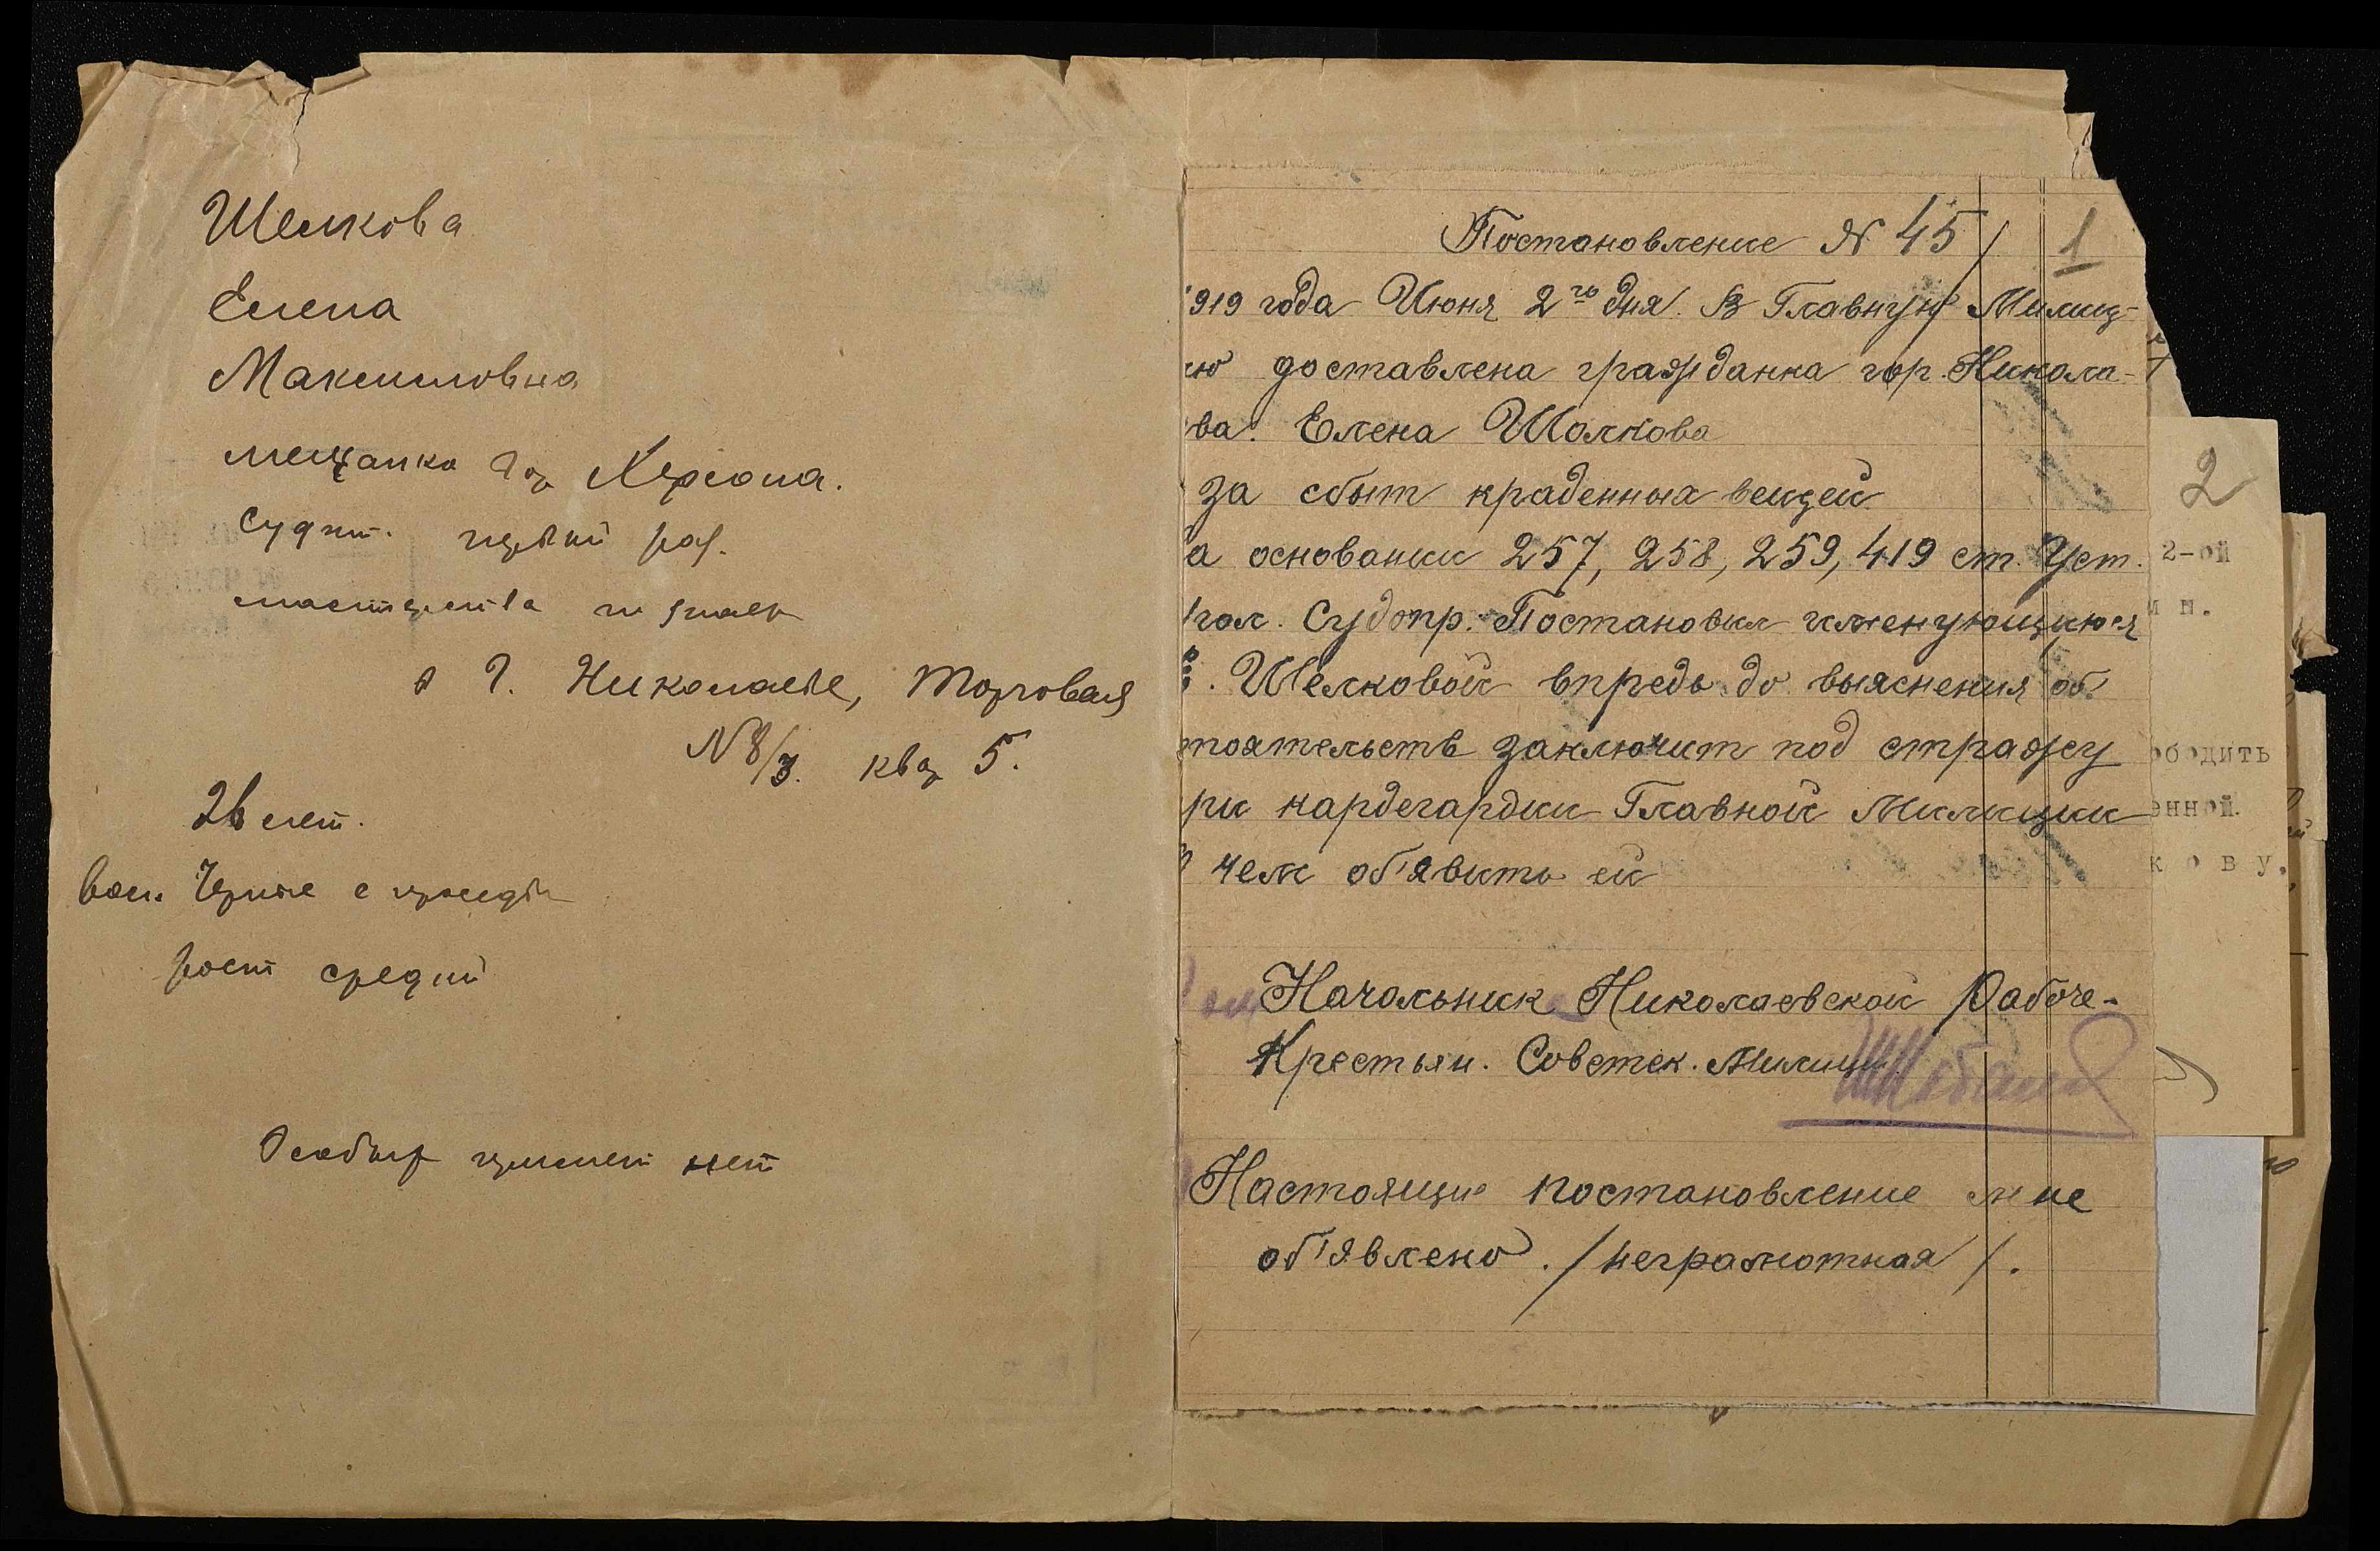 Шелкова
Елена
Максимовна
мещанка гор Херсона.
Судит. первый раз.
мастерства не знает
в г. Николаеве, Торговая
№ 8/3. ква 5.
26 лет.
вол. Черные с проседью
рост средний
Особых примет нет
Постановление № 45
1
919 года Июня 2го дня. В Главную Милиц-
ию доставлена гражданка гор. Никола-
ва. Елена Шолкова
за сбыт краденных вещей
а основании 257, 258, 259, 419 ст. Уст.
гол. Судопр. Постановил именующуюся
Шелковой впредь до выяснения об
тоятельств заключит под стражу
ри кардегардии Главной Милиции
чем об'явить ей
Начальник Николаевской Рабоче-
Крестьян. Советск. Милиции
Настоящие постановление мне
об'явлено. /неграмотная/.
2
2-ой
н.
ободить
енной.
кову.